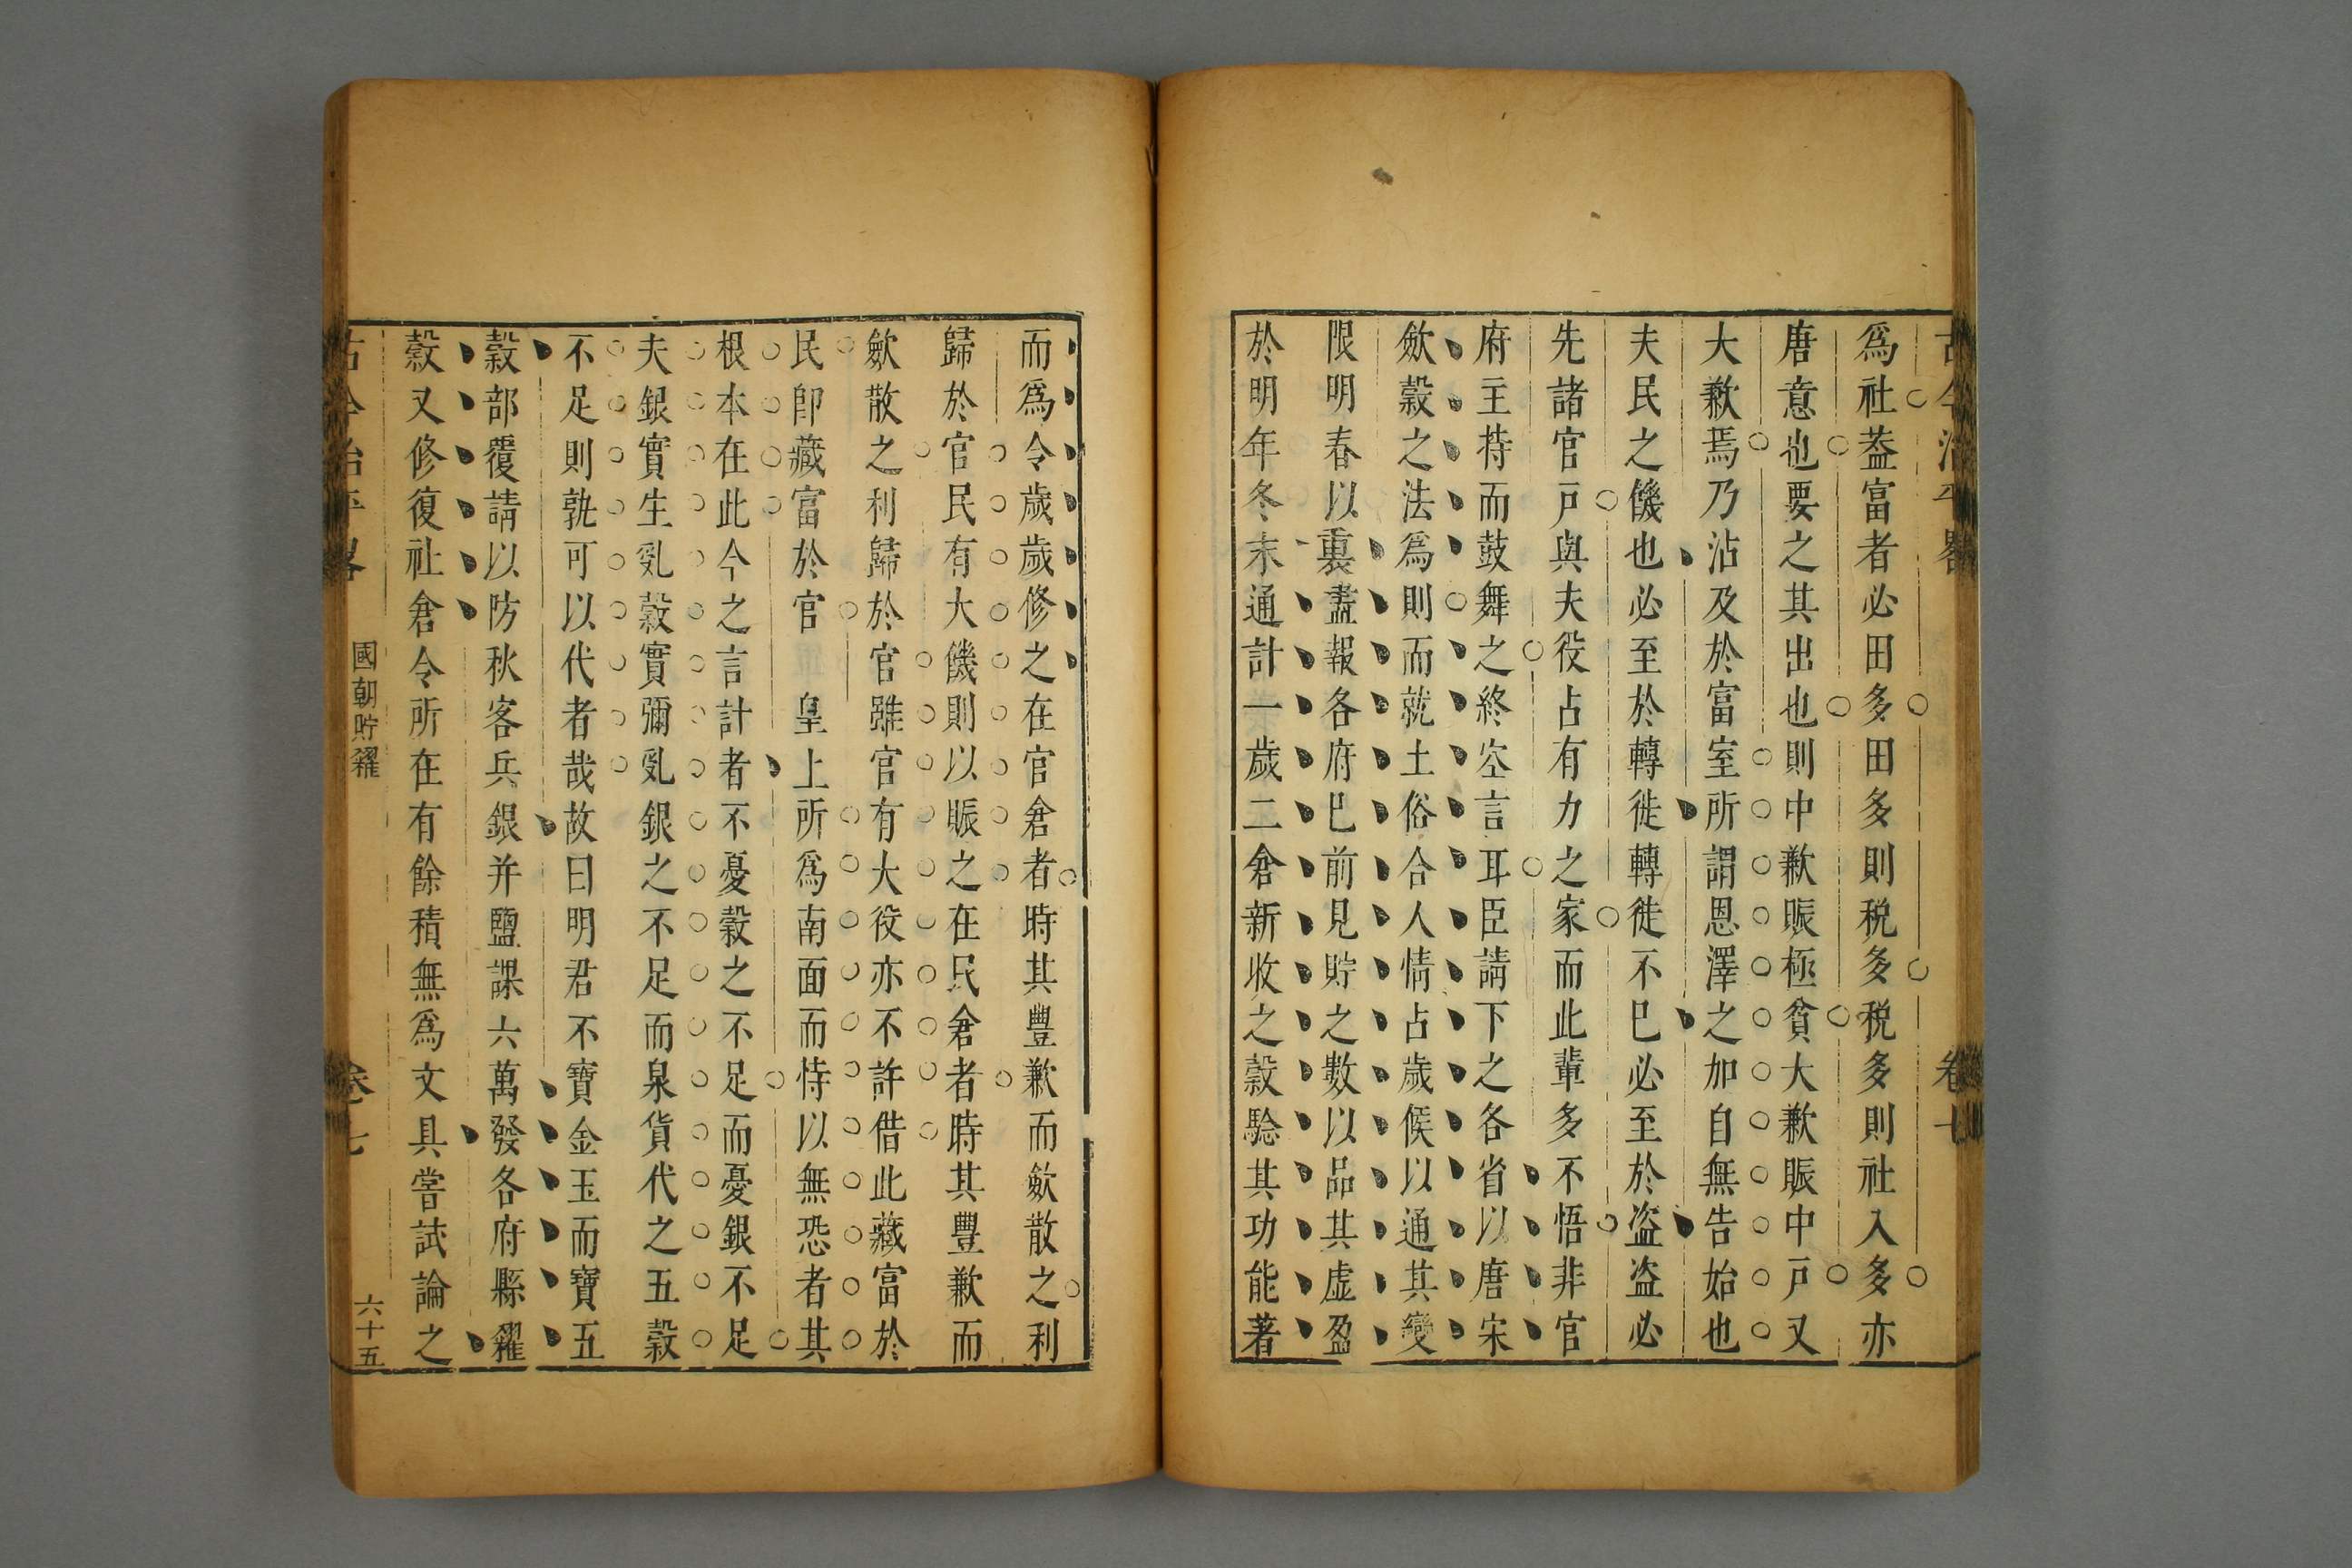 古今治平畧 卷七
為社葢富者必田多田多則税多税多則社入多亦
唐意也要之其出也則中歉賑極貧大歉賑中戸又
大歉焉乃沾及於富室所謂恩澤之加自無告始也
夫民之饑也必至於轉徙轉徙不巳必至於盗盗必
先諸官戸與夫役占有力之家而此輩多不悟非官
府主持而鼓舞之終空言耳臣請下之各省以唐宋
歛穀之法為則而就土俗合人情占歲候以通其變
限明春以裏盡報各府巳前見貯之數以品其虛盈
於明年冬末通計一歲二倉新收之穀騐其功能著
而為令歲歲修之在官倉者時其豐歉而歛散之利
歸於官民有大饑則以賑之在民倉者時其豐歉而
歛散之利歸於官雖官有大役亦不許借此藏富於
民卽藏富於官 皇上所為南面而恃以無恐者其
根本在此今之言計者不憂穀之不足而憂銀不足
夫銀實生亂穀實彌亂銀之不足而泉貨代之五穀
不足則孰可以代者哉故曰明君不寶金玉而寶五
穀部覆請以防秋客兵銀并鹽課六萬發各府縣糴
穀又修復社倉令所在有餘積無為文具嘗試論之
古今治平畧 國朝貯糴 卷七 六十五